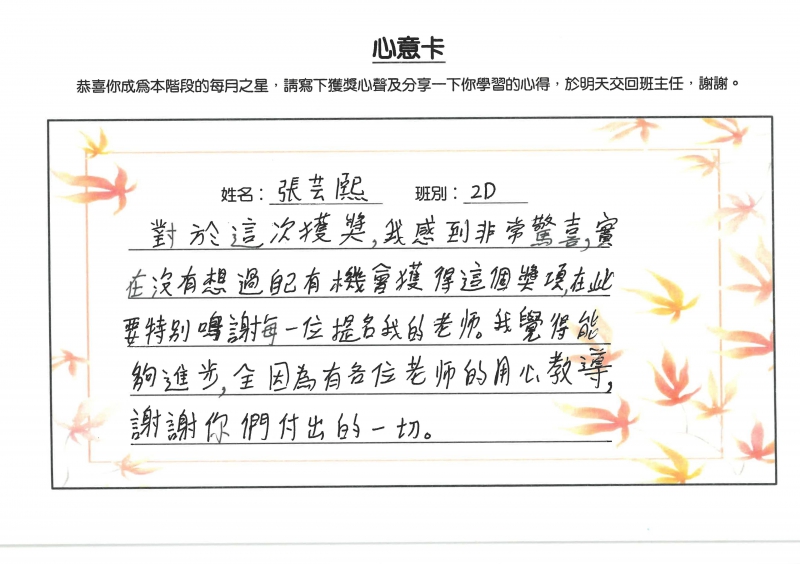 心意卡
恭喜你成為本階段的每月之星，請寫下獲獎心聲及分享一下你學習的心得，於明天交回班主任，謝謝。
姓名：張芸熙 班別：2D
對於這次獲獎，我感到非常驚喜，實
在沒有想過自己有機會獲得這個獎項，在此
要特別鳴謝每一位提名我的老师。我覺得能
夠進步，全因為有各位老师的用心教導，
謝謝你們付出的一切。